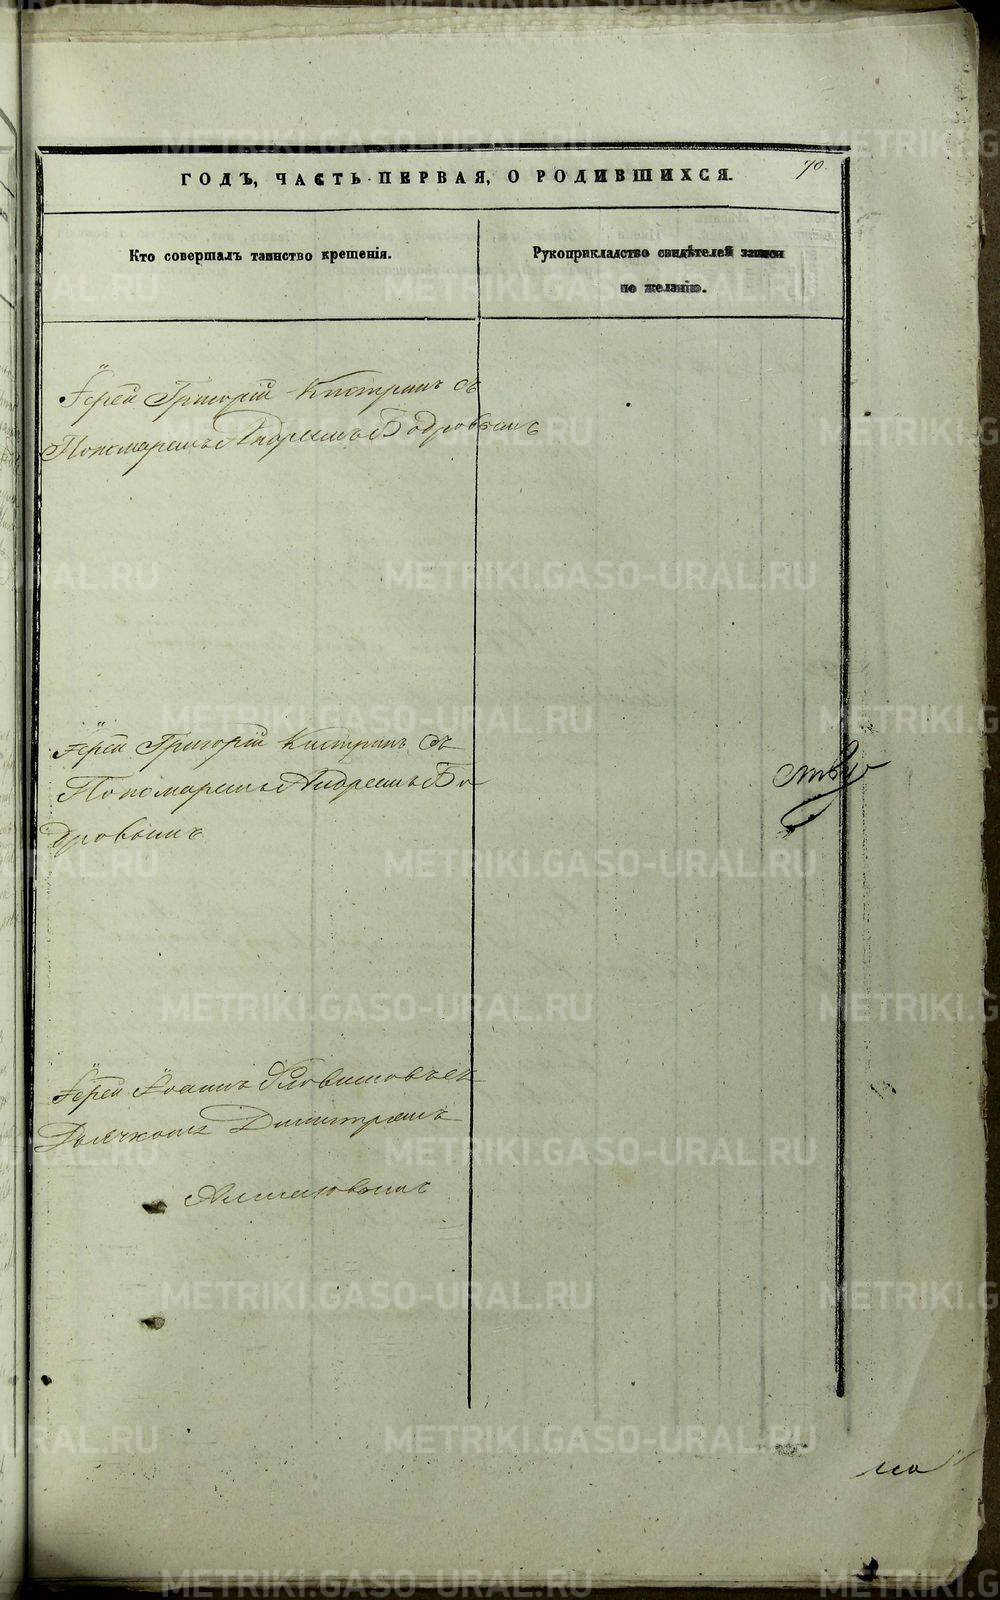 ГОДЪ, ЧАСТЬ ПЕРВАЯ, О РОДИВШИХСЯ.
70.
Кто совершалъ таинство крещенія.
Рукоприкладство свидѣтелей записи
по желанію.
Іерей Григорій Кистринъ съ
Пономаремъ Андреемъ Бодровымъ
Іерей Григорій Кистринъ съ
Пономаремъ Андреемъ Бо
дровымъ
Іерей Іоаннъ съ
Дьячкомъ Димитріемъ
METRIKI.GASO-URAL.RU